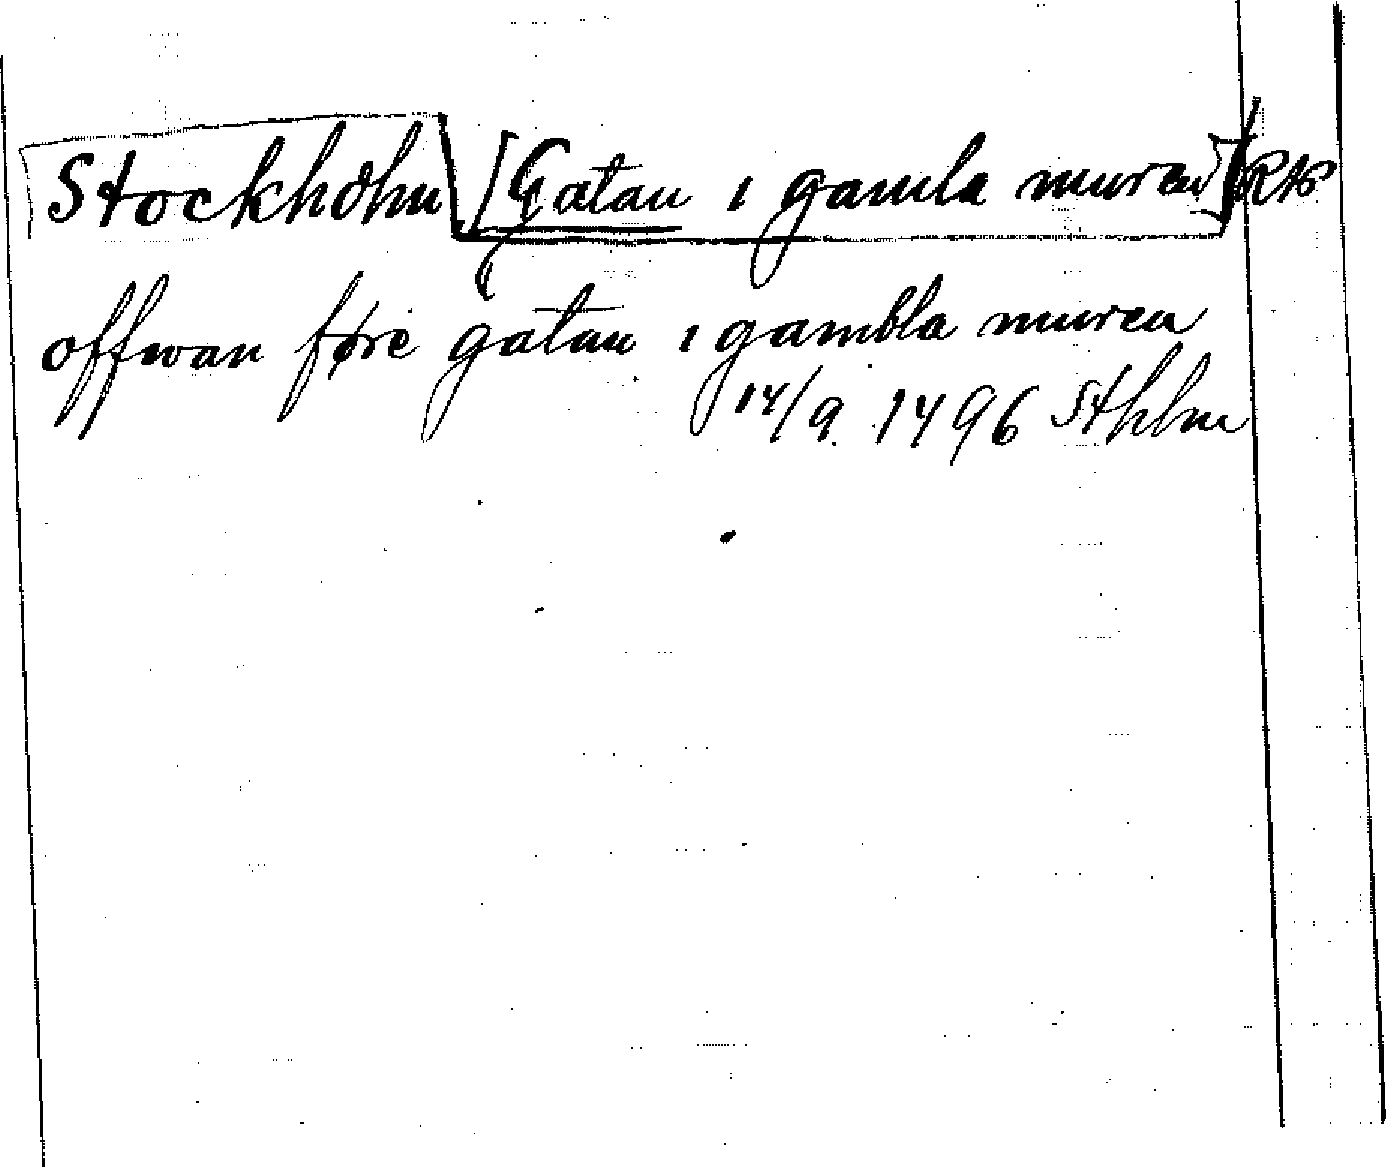 Stockholm [Gatan i gamla muren] RAP
offwan føre gatan i gambla muren
14/9. 1496 Sthlm